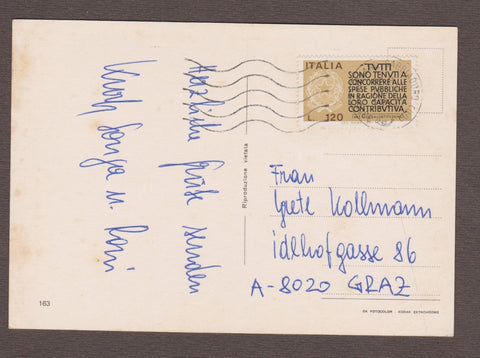 Herzliche Grüße senden
u.
ITALIA
TVTTI
SONO TENVTI A
CONCORRERE ALLE
SPESE PVBBLICHE
IN RAGIONE DELLA
LORO CAPACITA
CONTRIBVTIVA
120
Riproduzione vietata
Frau
Grete Kollmann
Idlhofgasse 86
A-8020 GRAZ
163
FOTOCOLOR - KODAK EKTACHROME